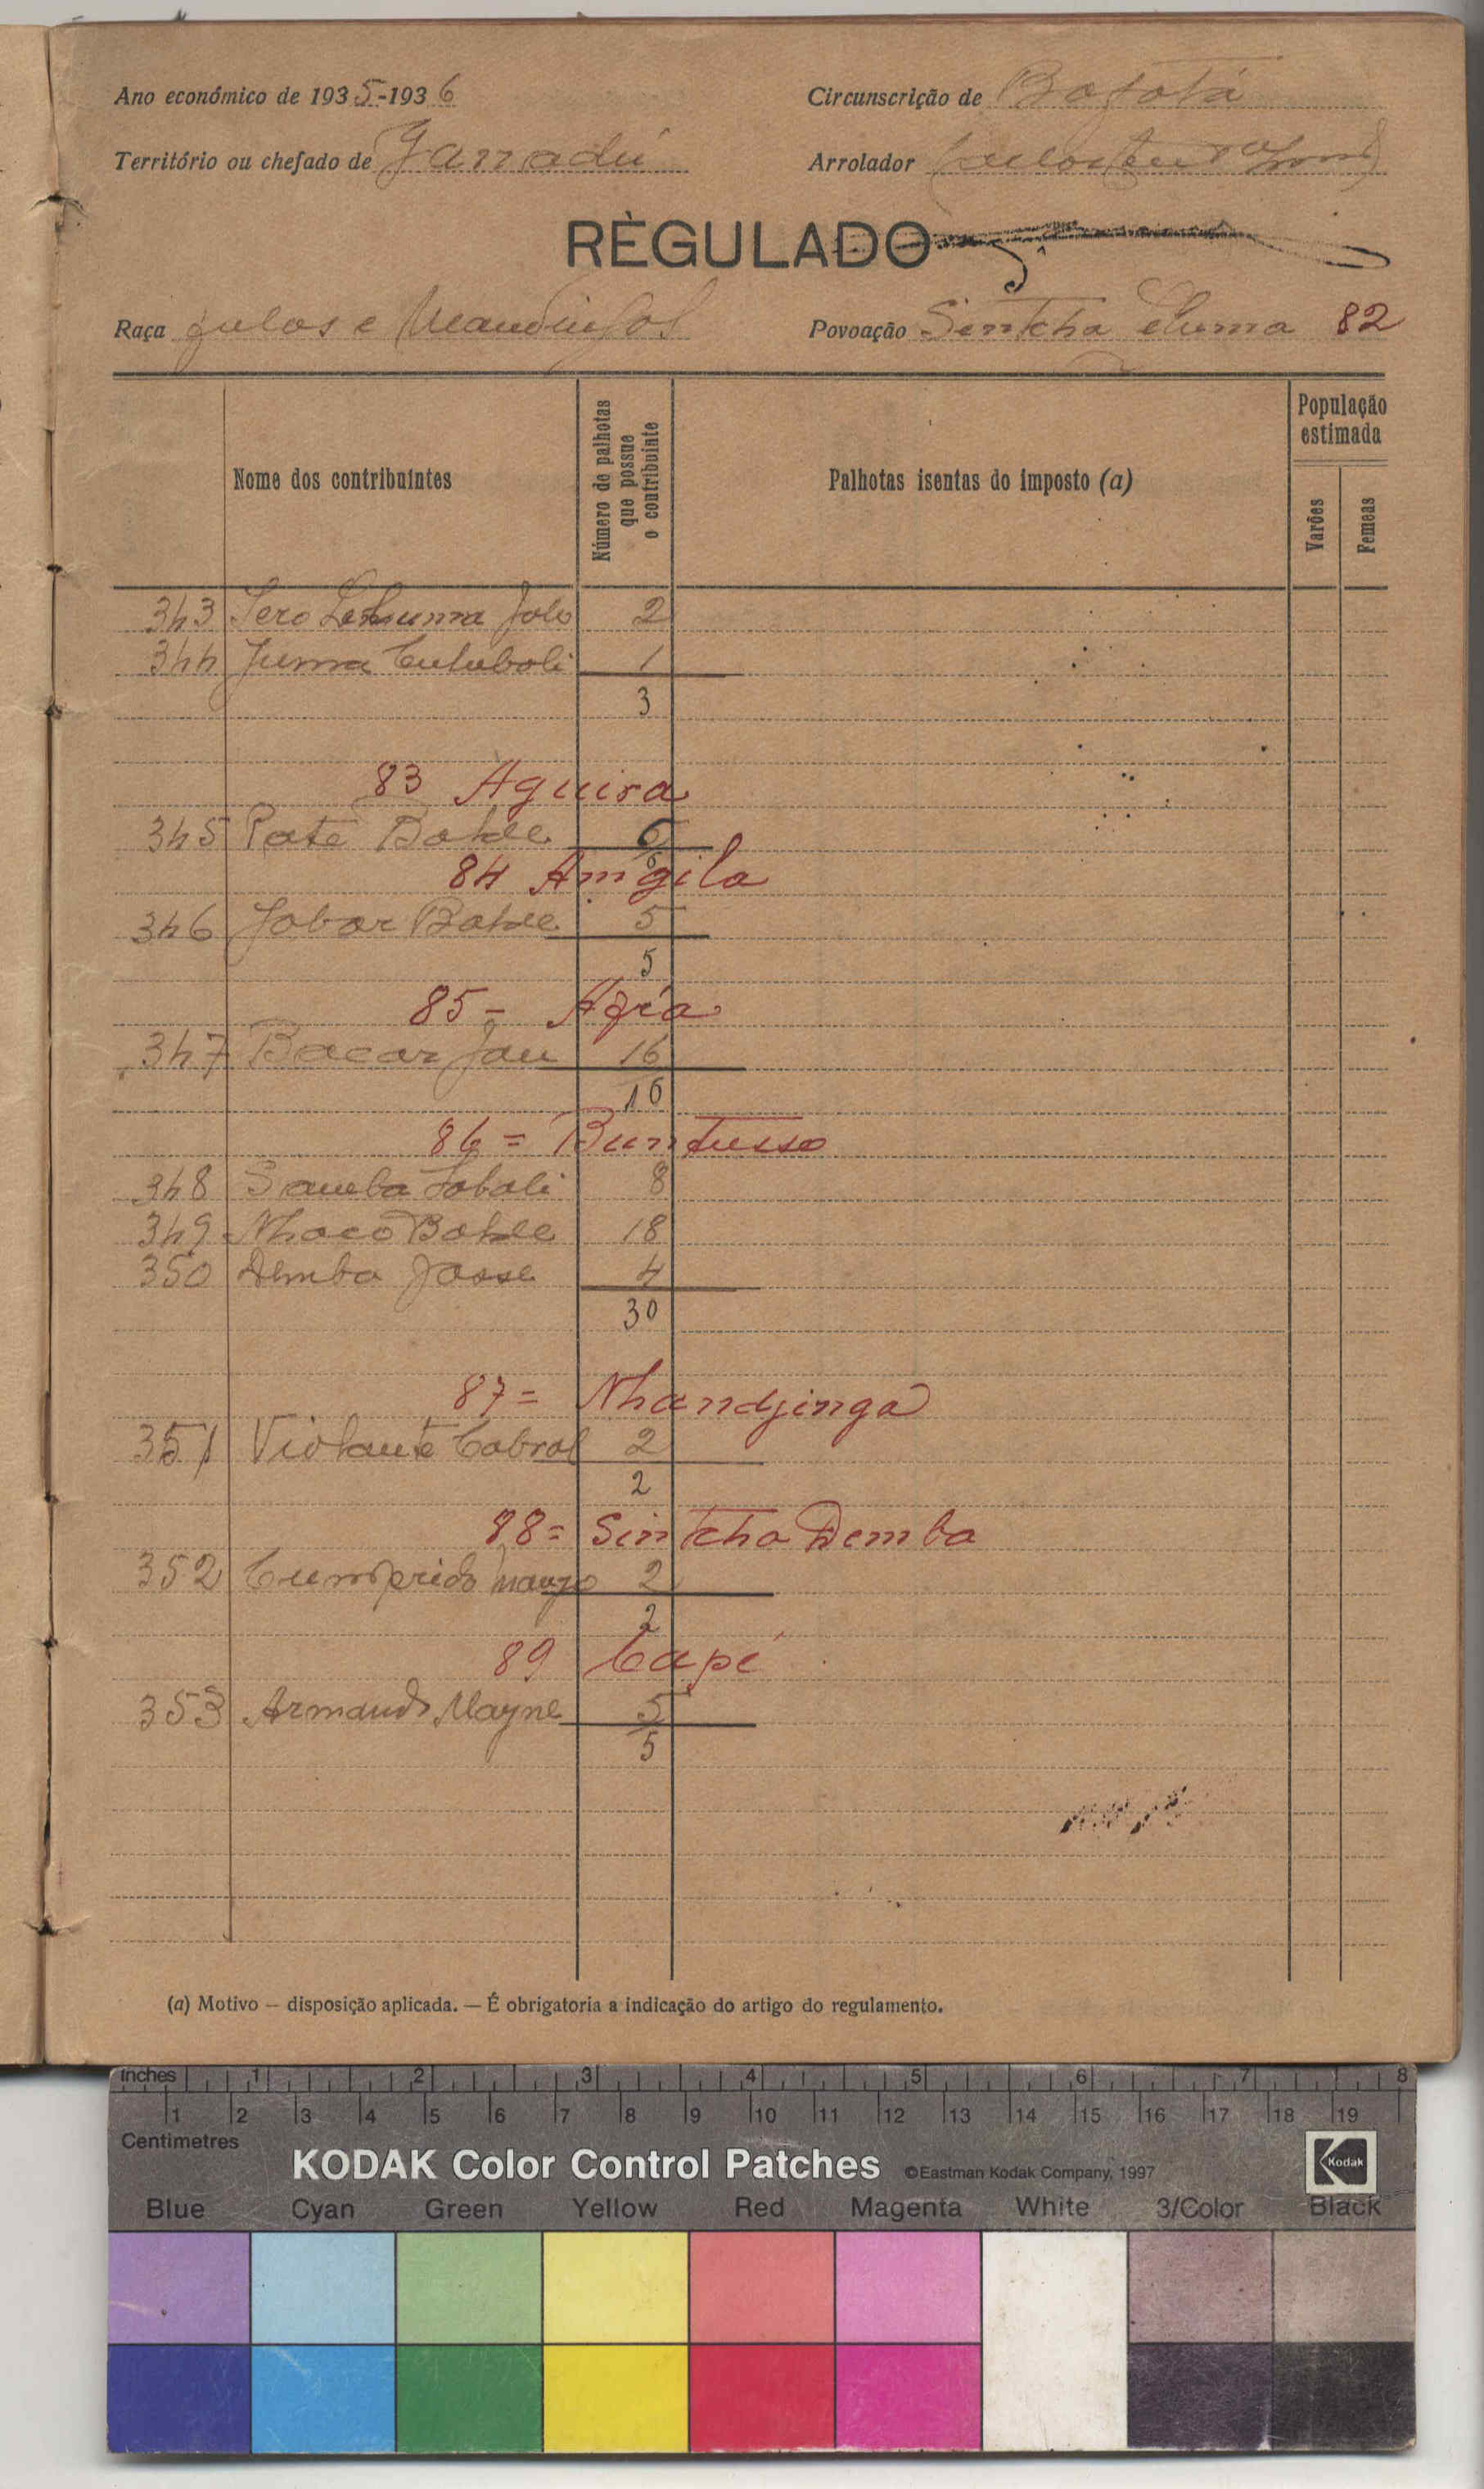 Ano económico de 1935-1936
Circunscrição de Bafatá
Território ou chefado de Ganadú
Arrolador
REGULADO
Raça fulas e Mandingas
Povoação Sintcha Iluma 82
Nome dos contribuintes
Número de palhotas que possue o contribuinte
Palhotas isentas do imposto (a)
População estimada
Varões
Femeas
343 Sero Jalo 2
344 Juma 1
3
83 Aguira
345 Paté Balde 6
6
84 Amgila
346 Jobar Balde 5
5
85 - Afiá
347 Bacar Jau 16
16
86 = Buntusso
348 Samba Sabali 8
349 Nhaco Balde 18
350 Demba Jasse 4
30
87 = Nhandjinga
351 Violante Cabral 2
2
88 = Sintcha Demba
352 Cumprido 2
2
89 Capé
353 Armando Mayne 5
5
(a) Motivo — disposição aplicada. — É obrigatoria a indicação do artigo do regulamento.
Inches 1 2 3 4 5 6 7 8
1 2 3 4 5 6 7 8 9 10 11 12 13 14 15 16 17 18 19
Centimetres
KODAK Color Control Patches ©Eastman Kodak Company, 1997 Kodak
Blue Cyan Green Yellow Red Magenta White 3/Color Black